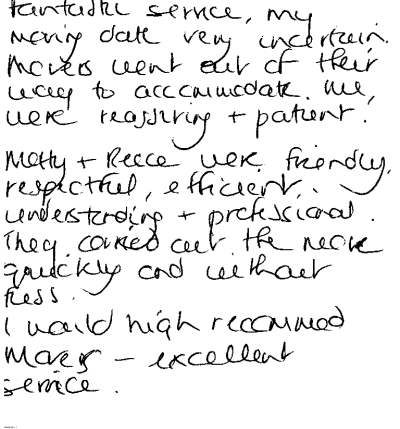 fantastic service, my
moving date very uncertain.
Movers went out of their
way to accommodate me,
were reassuring + patient.
Matty + Reece were friendly,
respectful, efficient,
understanding + professional.
They carried out the move
quickly and without
fuss.
I would high recommed
Movers – excellent
service.